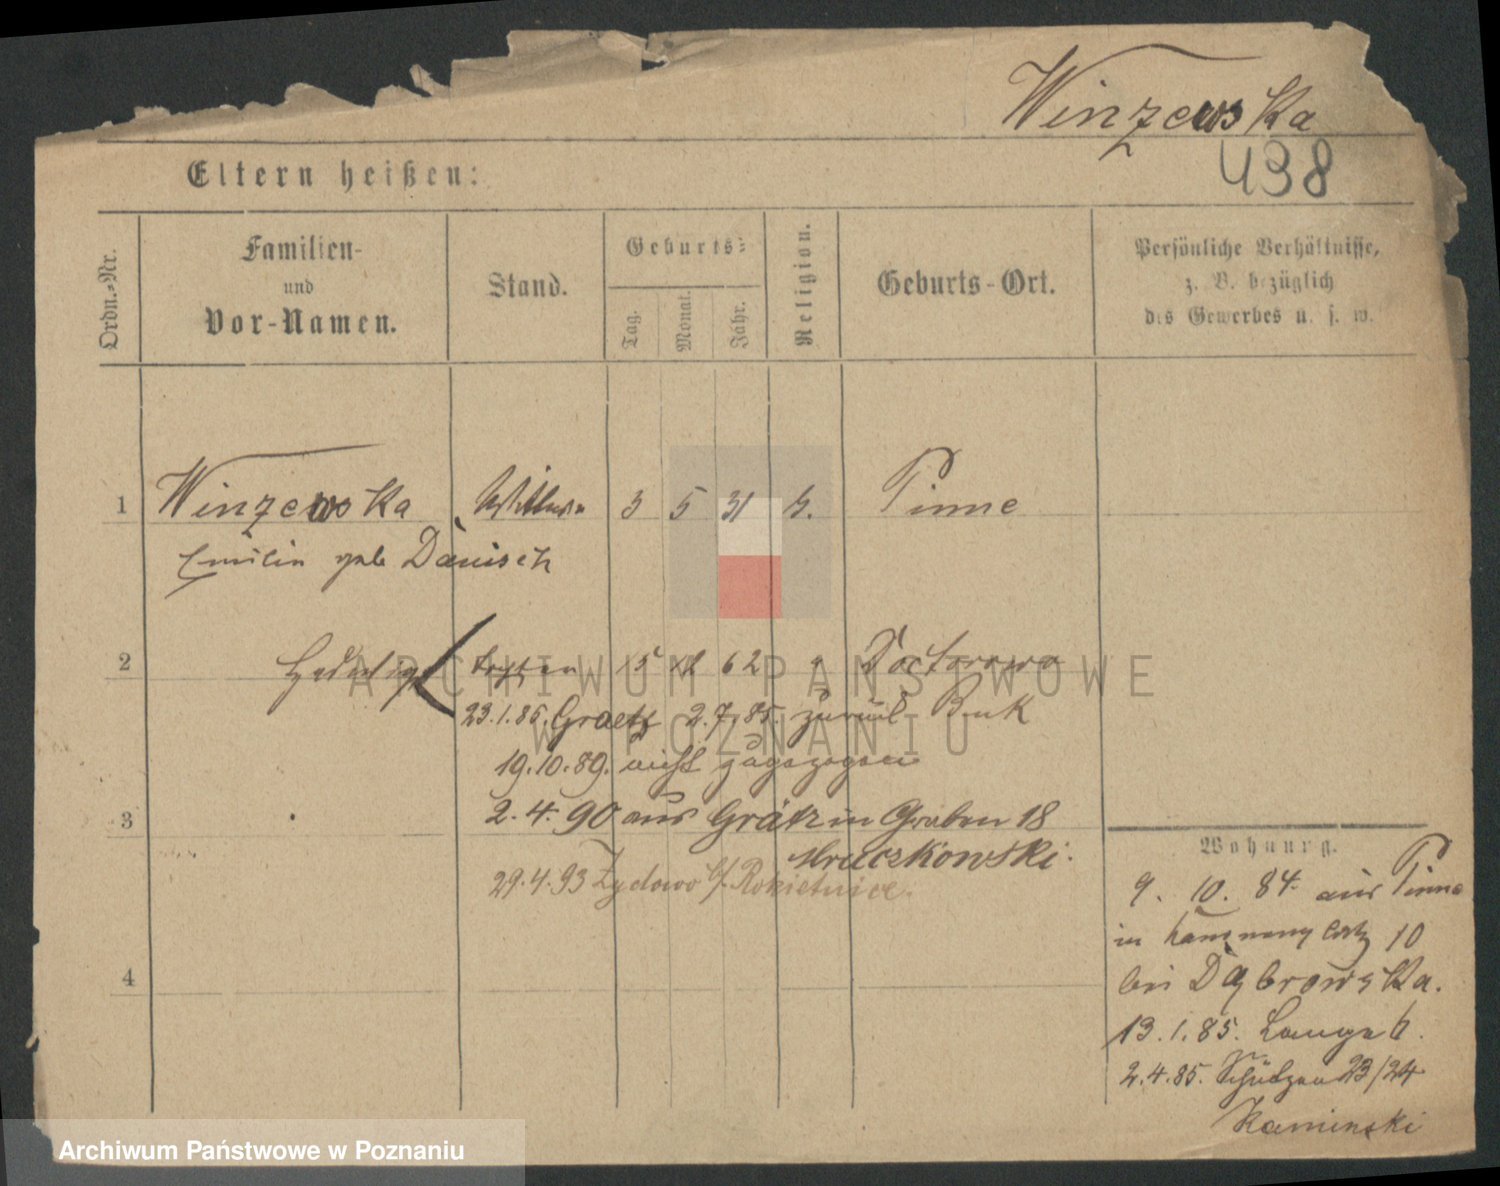 Winzewska
438
Eltern heißen:
Ordn.-Nr.
Familien-
und
Vor-Namen.
Stand.
Geburts-
Tag.
Monat.
Jahr.
Religion.
Geburts-Ort.
Persönliche Verhältnisse,
z. B. bezüglich
des Gewerbes u. s. w.
1 Winzewska Wittwe 3 5 31 Pinne
Emilie geb Dänisch
2 Hedwig Tochter 15 62 Doctorowo
23.1.85. Graetz 2.7.85. zurück Buk
19.10.89. nicht zugezogen
3 2.4.90 aus Grätz in Graben 18
Mruczkowski.
29.4.93 Zydowo b/. Rokietnice.
4
Wohnung.
9. 10. 84. aus Pinne
in 10
bei Dąbrowska.
13.1.85. Lange 6.
2.4.85. Schützen 23/24
Kaminski
ARCHIWUM PAŃSTWOWE
W POZNANIU
Archiwum Państwowe w Poznaniu